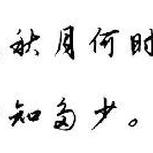 秋月何时
知多少。